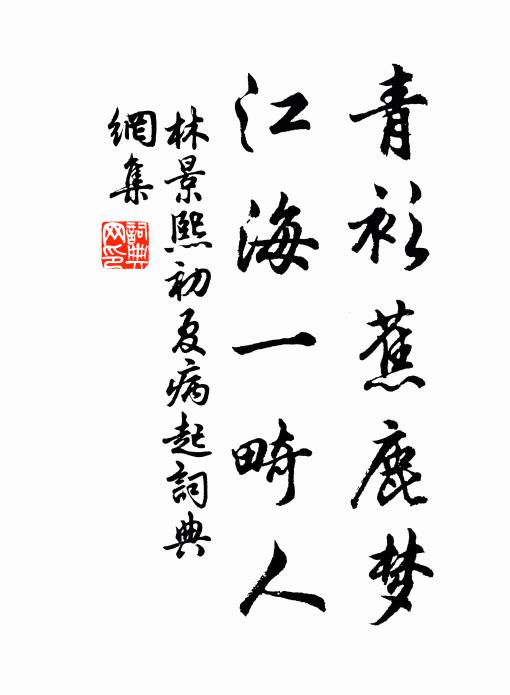 青衫蕉鹿梦
江海一畸人
林景熙初夏病起詞典
網集
詞典
网印